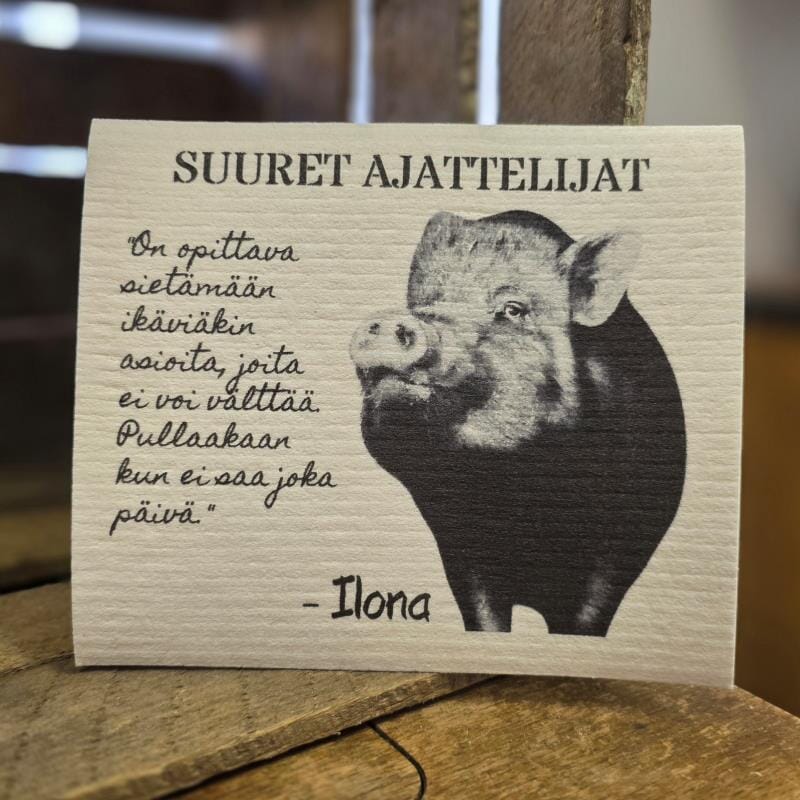 SUURET AJATTELIJAT
"On opittava
sietämään
ikäviäkin
asioita, joita
ei voi välttää.
Pullaakaan
kun ei saa joka
päivä."
- Ilona